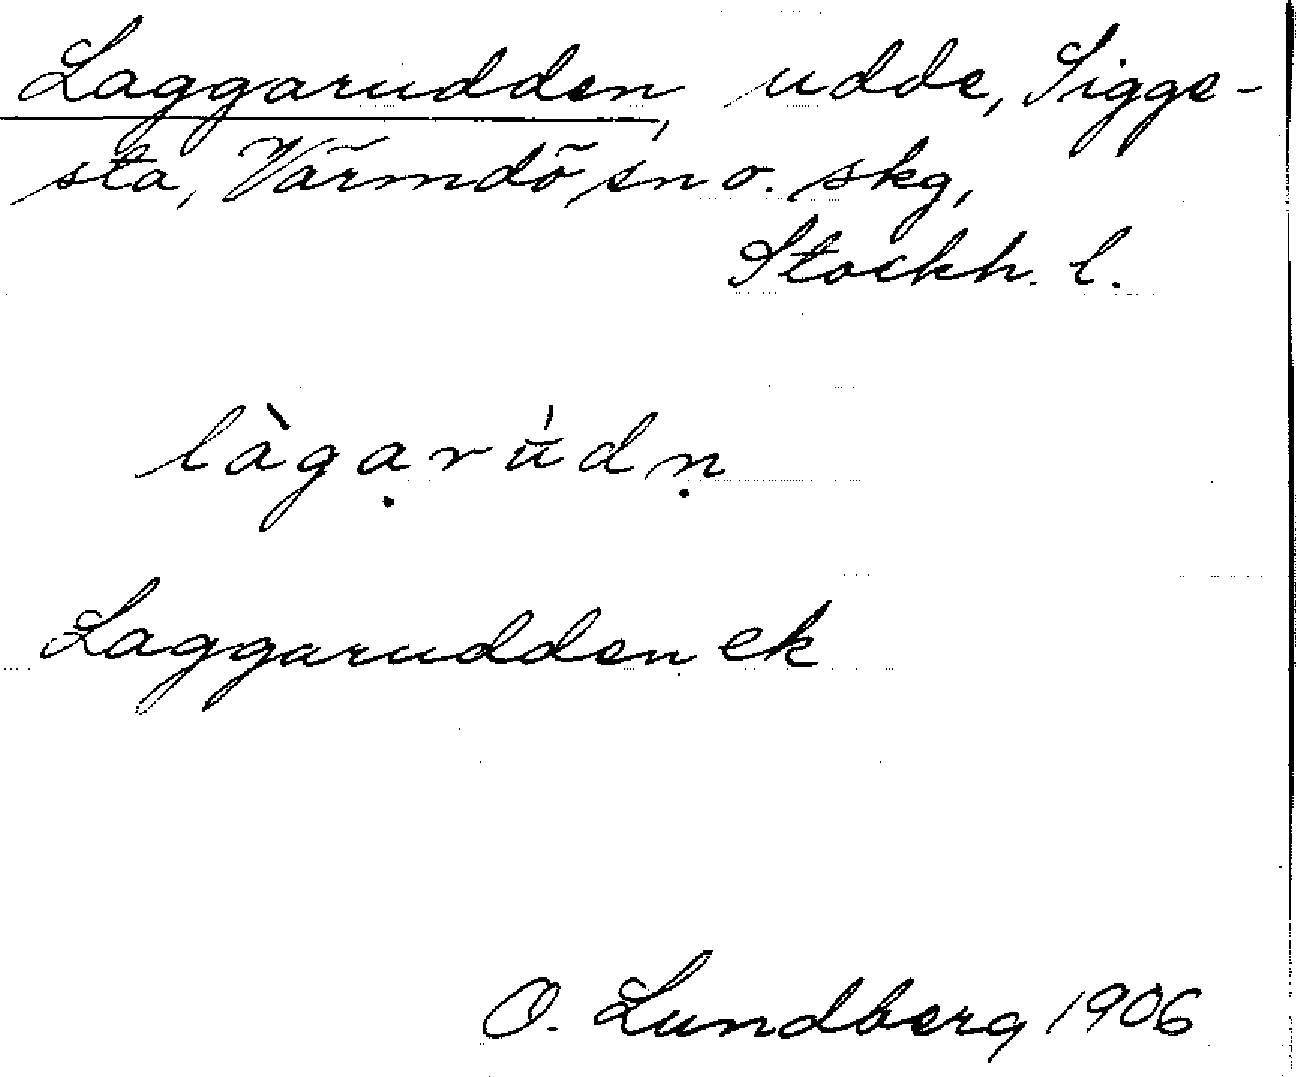 Laggarudden, udde, Sigge-
sta, Värmdö sn o. skg,
Stockh. l.
làgạrúdṇ
Laggarudden ek
O. Lundberg 1906